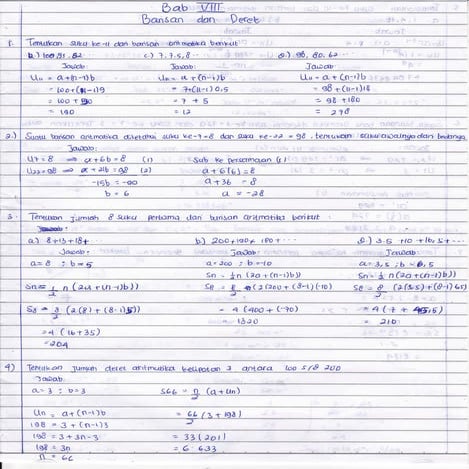 Bab VIII
Barisan dan Deret
1. Temukan suku ke-11 dari barisan aritmatika berikut
b.) 100, 91, 82 c) 7, 7.5, 8 ... d.) 98, 80, 62 ...
Jawab: Jawab: Jawab:
Un = a+(n-1)b Un = a+(n-1)b Un = a+(n-1)b
= 7+(11-1)0,5 = 98+(11-1)18
= 7 + 5 = 98 +180
= 190 = 12 = 278
2.) Suatu barisan aritmatika diketahui suku ke-7=8 dan suku ke-22 = 98. temukan suku awalnya dan bedanya
Jawab:
U7 = 8 ⇒ a+6b = 8 (1) Sub ke persamaan (1)
U22 = 98 ⇒ a+21b = 98 (2) a+6(6) = 8
-15b = -90 a+36 = 8
b = 6 a = -28
3. Temukan jumlah 8 suku pertama dari barisan aritmatika berikut
a) 8+13+18+ b) 200+190+180+... d) 3.5 +10 +16.5+...
Jawab: Jawab: Jawab:
a=8 ; b=5 a=200 ; b=-10 a=3.5 ; b=6.5
Sn = ½ n (2a+(n-1)b)) Sn = ½ n (2a+(n-1)b)) Sn = ½ n (2a+(n-1)b))
S8 = 8/2 (2(8)+(8-1)5) S8 = 8/2 (2(200)+(8-1)(-10) S8 = 8/2 (2(3.5)+(8-1)6.5)
= 4 (16+35) = 4 (400+(-70) = 4 (7+45.5)
= 204 = 1320 = 210
4) Temukan jumlah deret aritmatika kelipatan 3 antara 100 s/d 200
Jawab:
a=3 ; b=3 S66 = n/2 (a+Un)
Un = a+(n-1)b = 66/2 (3+198)
198 = 3+(n-1)3
198 = 3+3n-3 = 33(201)
198 = 3n = 6.633
n = 66